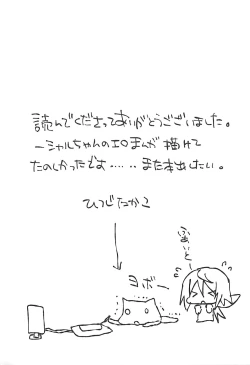 読んでくださってありがとうございました。
ーシャルちゃんのエロまんが描けて
たのしかったです……また本出したい。
ひつじたかこ
ふぁいとー
ヨボー